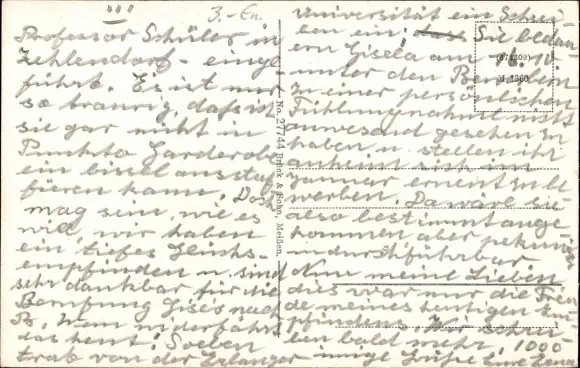 III
3.-En.
Professor Schüler, in
Zehlendorf - einge
führt. Es ist nur
so traurig, daß ich
sie gar nicht in
Punkto Garderobe
ein bissel ausstaf
fieren kann. Doch
mag sein, wie es
will, wir haben
ein tiefes Glücks-
empfinden u. sind
sehr dankbar für die
Berufung Gise's nach
B. Wem widerfährt
das heut! Soeben
traf von der Erlanger
No. 27744 Brück & Sohn, Meißen.
Universität ein Schrei
ben ein: Sie bedau
ern Gisela am 16. IV.
unter den Bewerbern
zu einer persönlichen
Fühlungnahme nicht
anwesend gesehen zu
haben u. stellen ihr
anheim sich im
Januar erneut zu be
werben. Da wäre sie
also bestimmt ange
kommen aber pekuniär
undurchführbar
Nun meine Lieben
dies war nur die Freu
de meines heutigen Em
pfindens.
bald mehr, 1000
innige Grüße Eure Erna
(874309)
01 1960